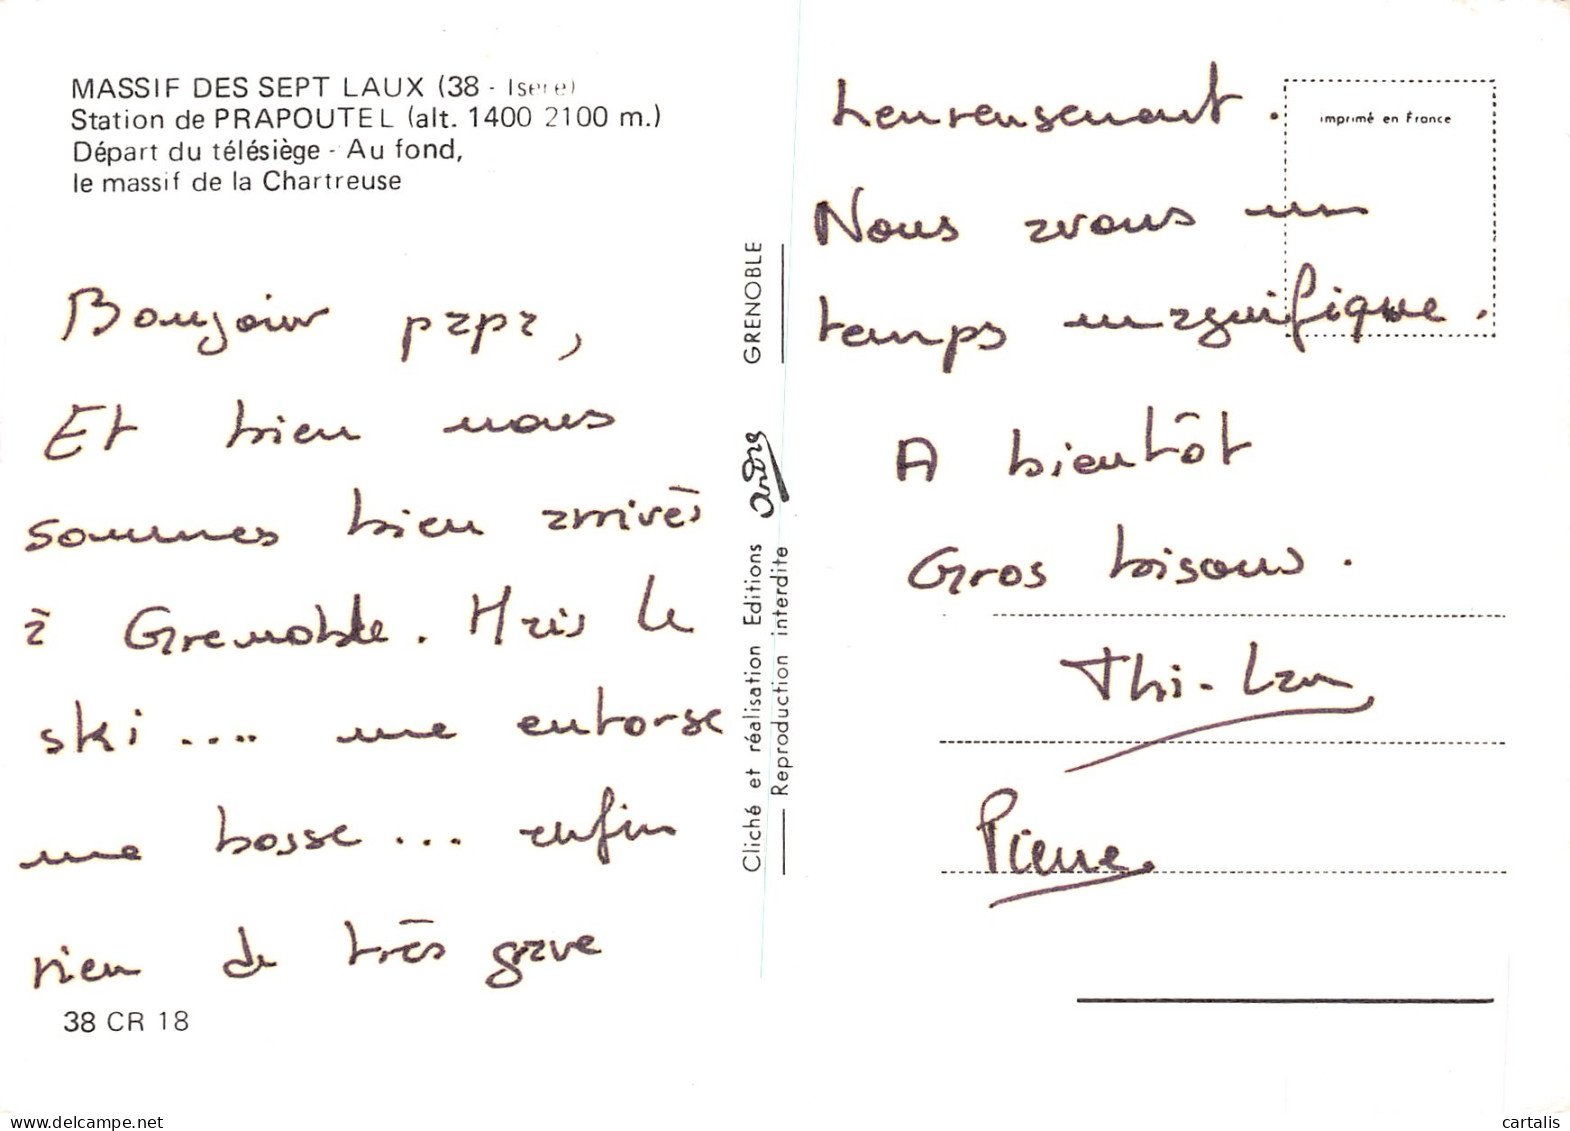 MASSIF DES SEPT LAUX (38 - Isère)
Station de PRAPOUTEL (alt. 1400 2100 m.)
Départ du télésiège - Au fond,
le massif de la Chartreuse
Bonjour papa,
Et bien nous
sommes bien arrivés
à Grenoble. Mais le
ski .... une entorse
une bosse ... enfin
rien de très grave
38 CR 18
Cliché et réalisation Editions André GRENOBLE
Reproduction interdite
imprimé en France
heureusement.
Nous avons un
temps magnifique.
A bientôt
Gros bisous.
Thi-Lan
Pierre.
delcampe.net
cartalis